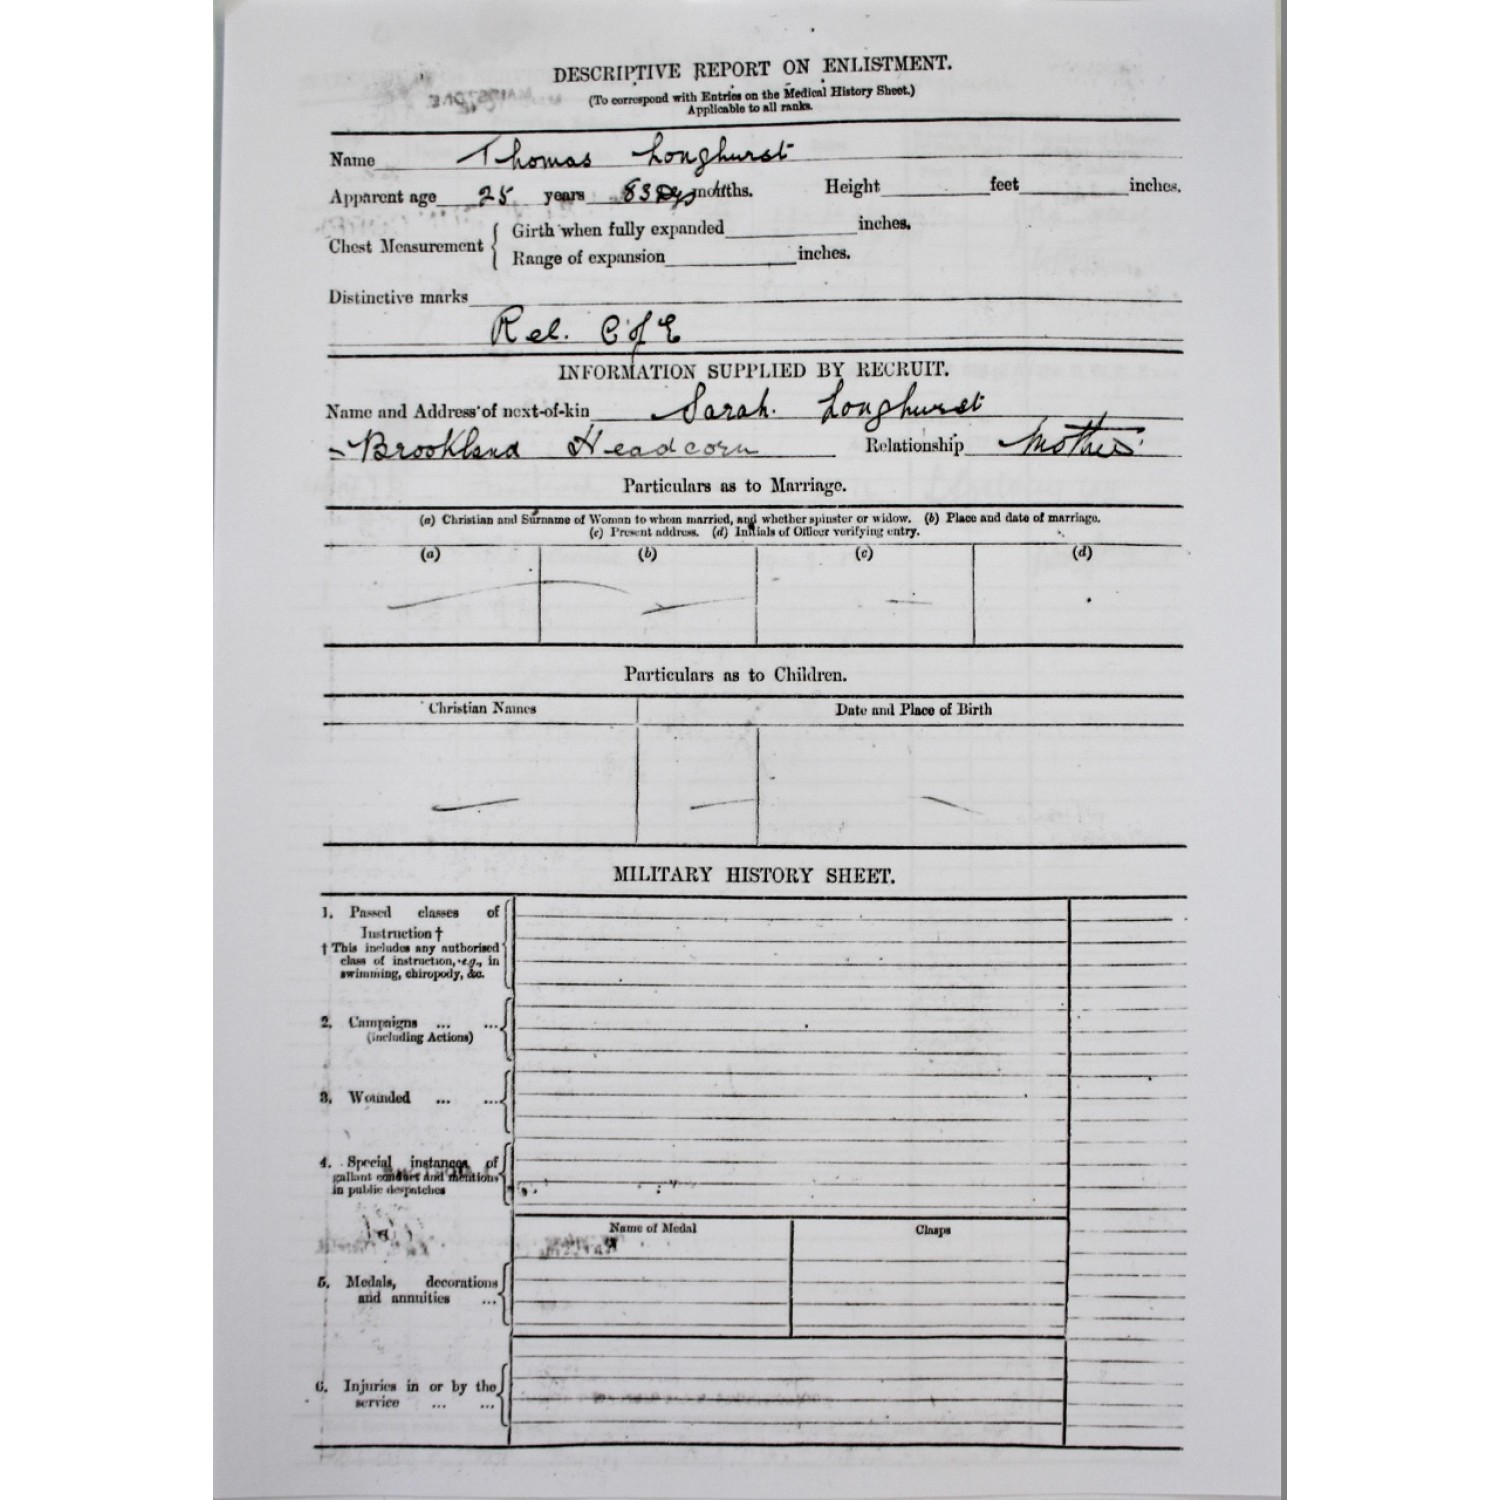 DESCRIPTIVE REPORT ON ENLISTMENT.
(To correspond with Entries on the Medical History Sheet.)
Applicable to all ranks.
Name Thomas Longhurst
Apparent age 25 years 83 Dys months. Height feet inches.
Chest Measurement { Girth when fully expanded inches.
Range of expansion inches.
Distinctive marks
Rel. C of E
INFORMATION SUPPLIED BY RECRUIT.
Name and Address of next-of-kin Sarah. Longhurst
Brookland Headcorn Relationship Mother
Particulars as to Marriage.
(a) Christian and Surname of Woman to whom married, and whether spinster or widow. (b) Place and date of marriage.
(c) Present address. (d) Initials of Officer verifying entry.
(a) (b) (c) (d)
Particulars as to Children.
Christian Names Date and Place of Birth
MILITARY HISTORY SHEET.
1. Passed classes of
Instruction †
† This includes any authorised
class of instruction, e.g., in
swimming, chiropody, &c.
2. Campaigns ... ...
(including Actions)
3. Wounded ... ...
4. Special instances of
gallant conduct and mentions
in public despatches
Name of Medal Clasps
5. Medals, decorations
and annuities ...
6. Injuries in or by the
service ... ...